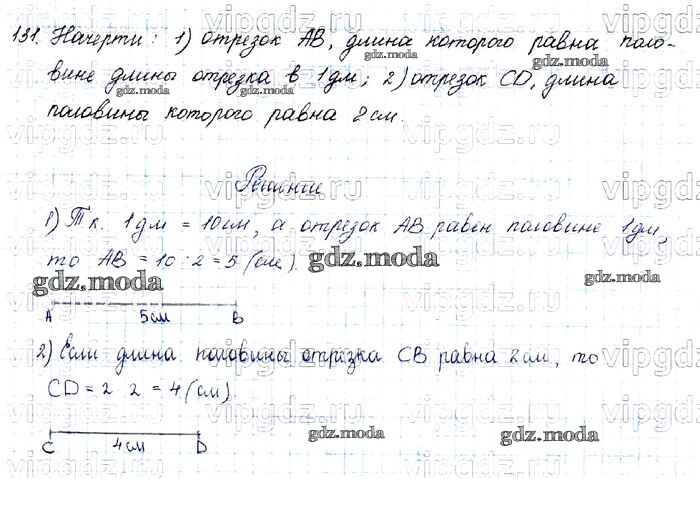 131. Начерти: 1) отрезок AB, длина которого равна поло-
вине длины отрезка в 1 дм; 2) отрезок CD, длина
половины которого равна 2 см.
Решение
1) Т.к. 1 дм = 10 см, а отрезок AB равен половине 1 дм,
то AB = 10 : 2 = 5 (см).
A 5 см B
2) Если длина половины отрезка CB равна 2 см, то
CD = 2 2 = 4 (см)
C 4 см D
vipgdz.ru
gdz.moda